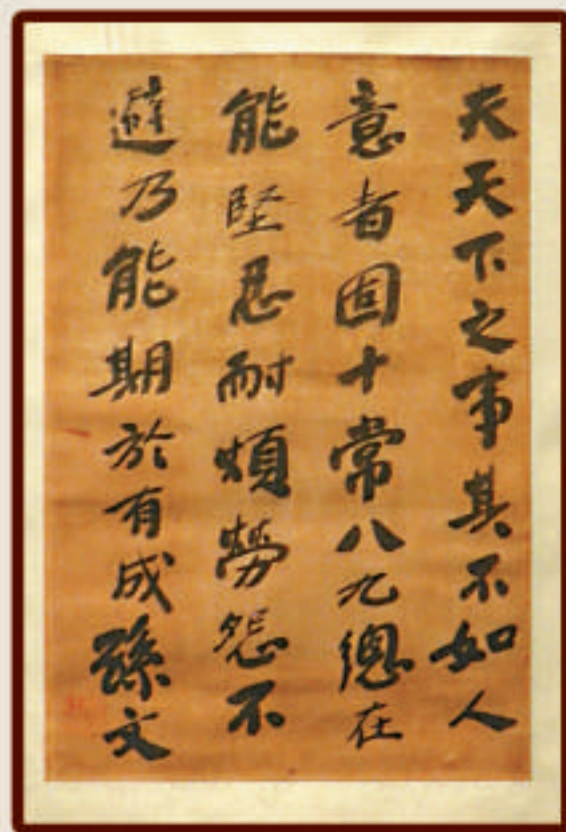 夫天下之事其不如人
意者固十常八九總在
能堅忍耐煩勞怨不
避乃能期於有成孫文